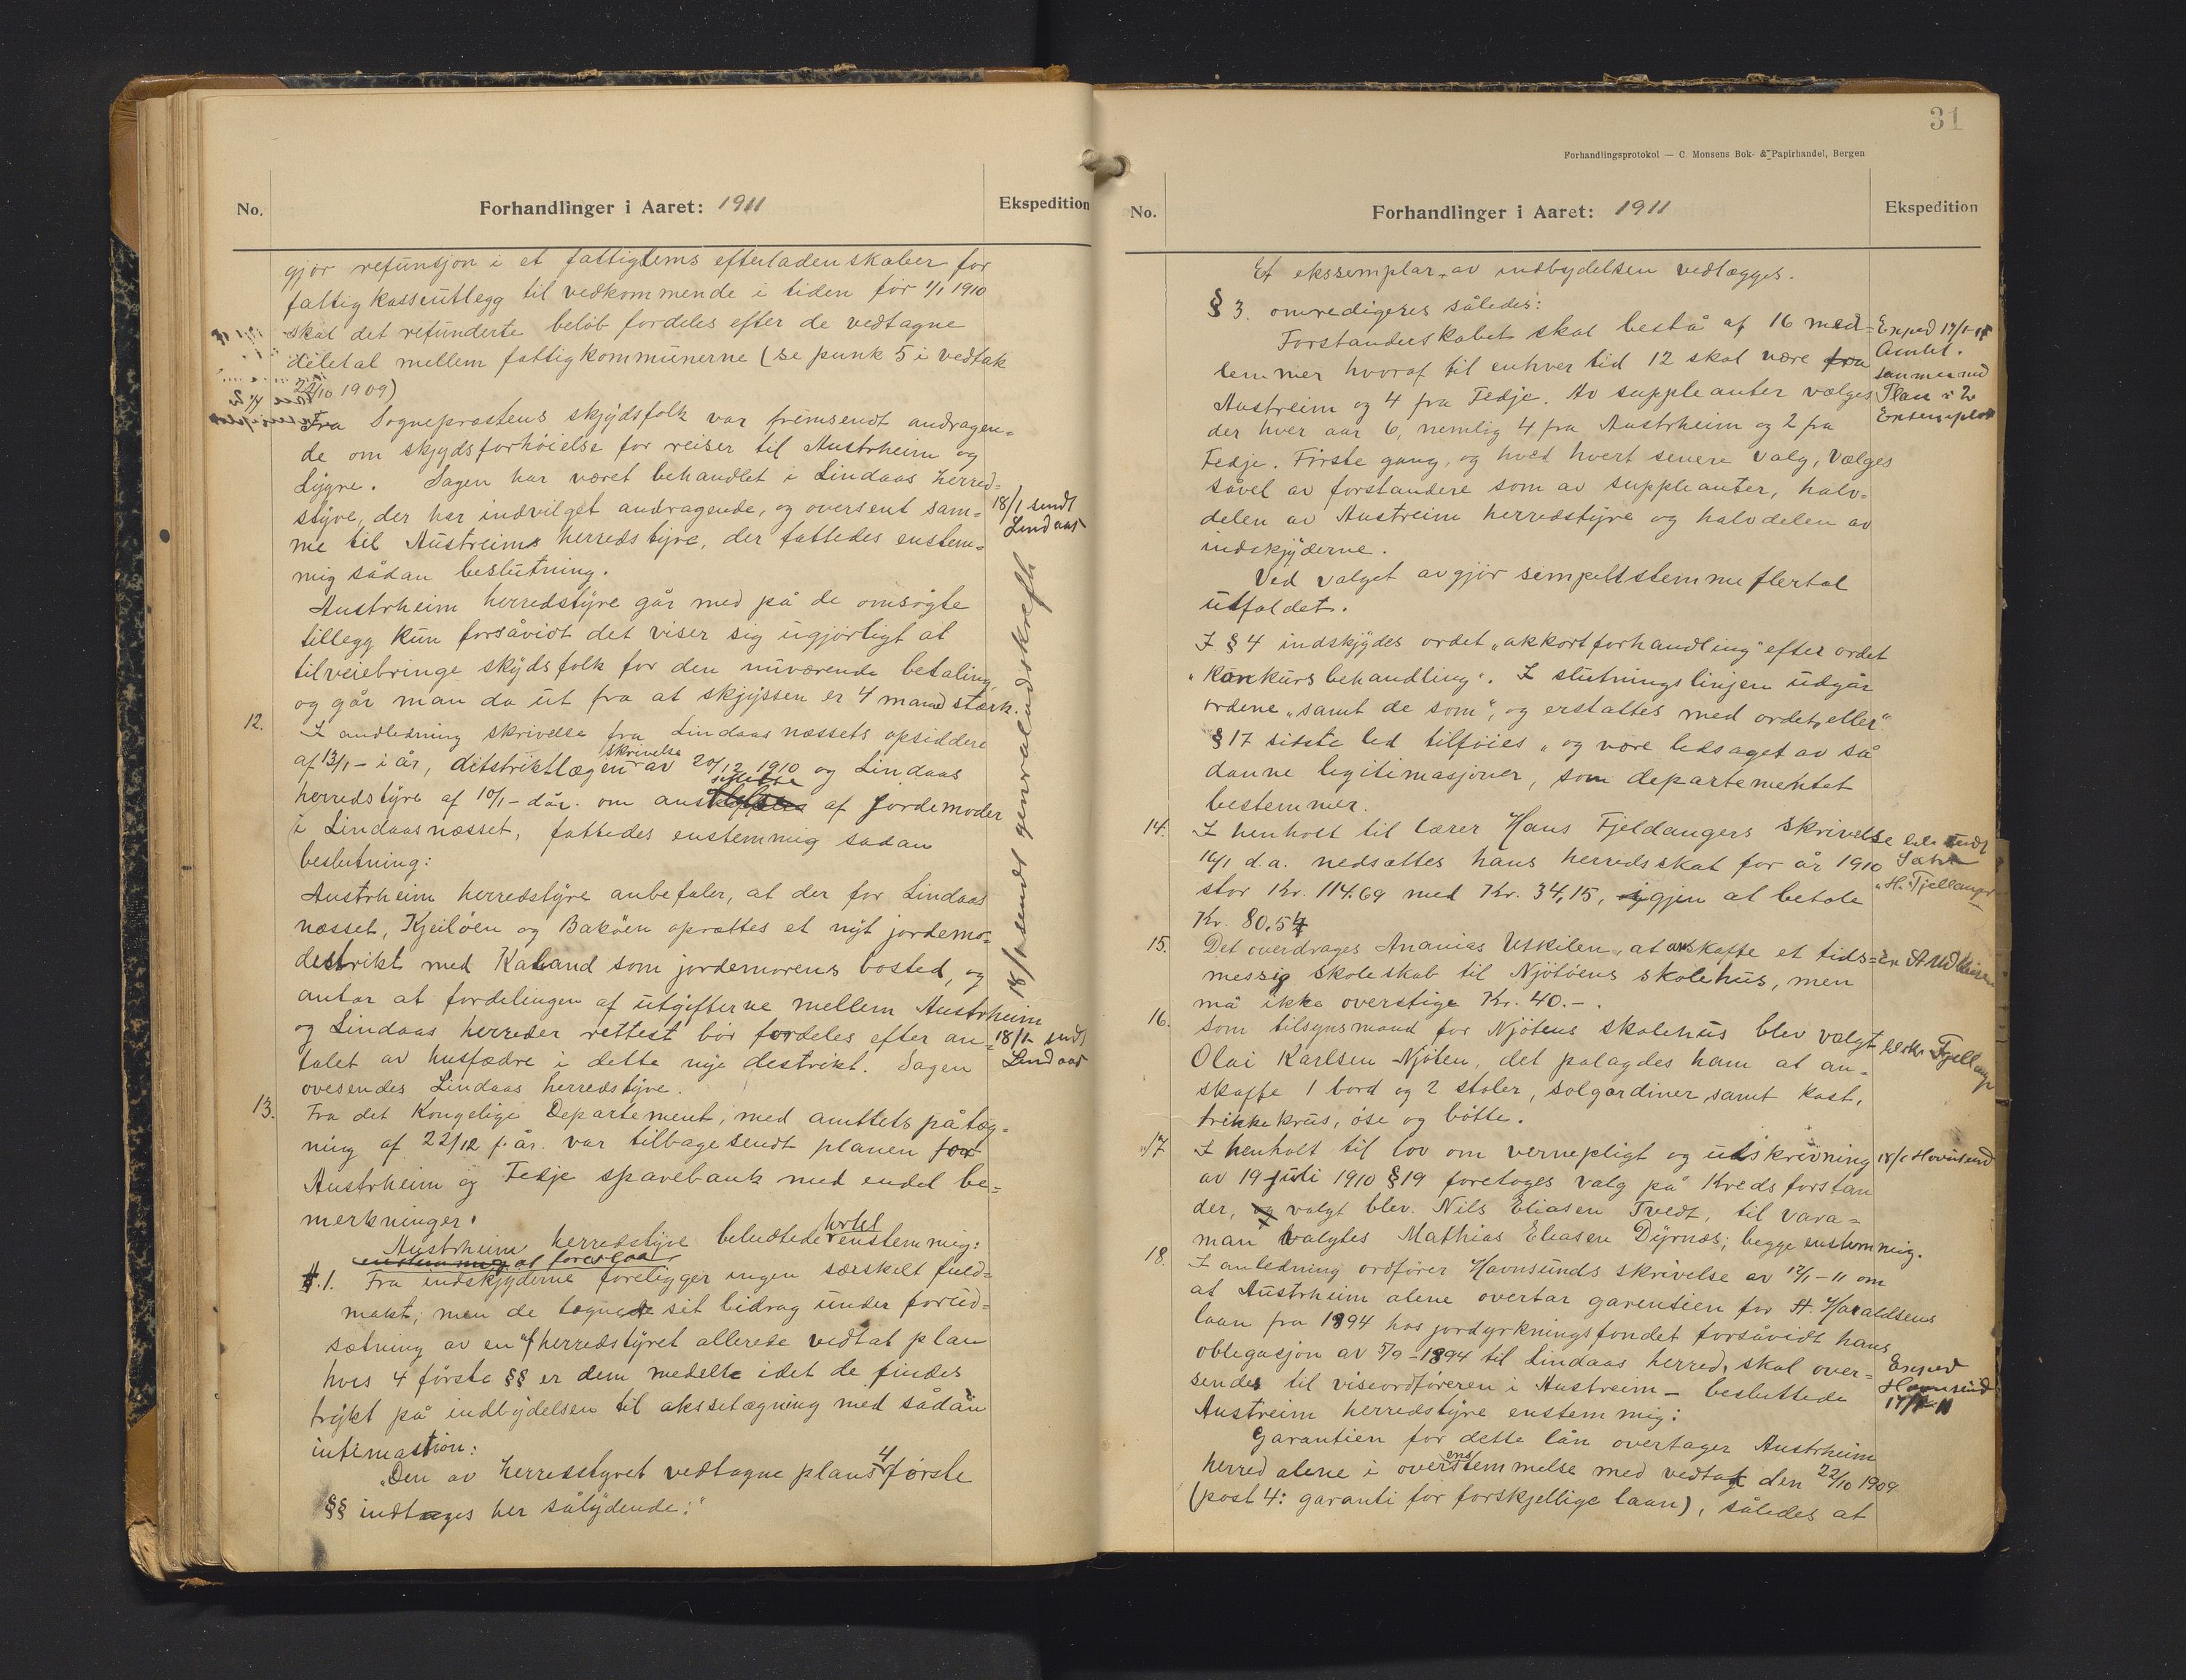 No.
Forhandlinger i Aaret: 1911
Ekspedition
gjør refunsjon i et fattiglems efterladenskaber for
fattigkasseutlegg til vedkommende i tiden før 1/1 1910
skal det refunderte beløb fordeles efter de vedtagne
deletal mellem fattigkommunerne (se punk 5 i vedtak
22/10 1909)
Fra Sogneprestens skjydsfolk var fremsendt andragen=
de om skjydsforhøielse for reiser til Austrheim og
Lygre. Sagen har været behandlet i Lindaas herred=
styre, der har indvilget andragende, og oversent sam=
me til Austreims herredstyre, der fattedes enstem=
mig sådan beslutning.
18/1 sendt
Lindaas
Austrheim herredstyre går med på de omsøgte
tillegg kun forsåvidt det viser sig ugjørligt at
tilveiebringe skydsfolk for den nuværende betaling,
og går man da ut fra at skjyssen er 4 mand stærk.
12.
I andledning skrivelse fra Lindaas næssets opsiddere
af 13/1 - i år, ditstriktlægens skrivelse av 20/12 1910 og Lindaas
herredstyre af 10/1 - d år. om ansettelse af Jordemoder
i Lindaasnæsset, fattedes enstemmig sadan
beslutning:
Austrheim herredsstyre anbefaler, at der for Lindaas
næsset, Kjeiløen og Bakøen oprættes et nyt jordemo=
destrikt med Kaland som jordemorens bosted, og
antar at fordelingen af utgifterne mellem Austrheim
og Lindaas herreder rettest bør fordeles efter an=
talet av husfædre i dette nye destrikt. Sagen
ovesendes Lindaas herredstyre.
18/1 sendt genralutskreft
18/1 sendt
Lindaas
13.
Fra det Kongelige Departement, med amttets påteg=
ning af 22/12 f. år. var tilbagesendt planen for
Austrheim og Fedje sparebank med endel be=
merkninger.
Austrheim herredstyre beludtede enstemmig:
enstemmig at foreslaa
§.1. Fra indskjyderne foreligger ingen særskilt fuld=
makt; men de tegnede sit bidrag under forud=
sætning av en af herredstyret allerede vedtat plan
hvis 4 første §§ er dem medelte idet de findes
trykt på indbydelsen til aksjetægning med sådan
intimastion:
"Den av herredstyret vedtagne plans 4 første
§§ indtages her sålydende:"
31
Forhandlingsprotokol — C. Monsens Bok- & Papirhandel, Bergen
No.
Forhandlinger i Aaret: 1911
Ekspedition
Et eksemplar av indbydelsen vedlægges.
§ 3. omredigeres således:
Forstanderskabet skal bestå af 16 med=
lemmer hvoraf til enhver tid 12 skal være fra
Austreim og 4 fra Fedje. Av suppleanter vælges
der hver aar 6, nemlig 4 fra Austrheim og 2 fra
Fedje. Første gang, og hved hvert senere valg, vælges
såvel av forstandere som av suppleanter, halv=
delen av Austreim herredstyre og halvdelen av
indskjyderne.
Exped 17/1-11
Amtet.
sammen med
Plan i 2
Exsemplar
Ved valget avgjør simpeltstemmeflertal
utfaldet.
I § 4 indskjydes ordet "akkortforhandling" efter ordet
"konkursbehandling". I slutningslinjen udgår
ordene "samt de som", og erstattes med ordet "eller"
§ 17 sidste led tilføies "og være ledsaget av så
danne legitimasjoner, som departementet
bestemmer.
14.
I henholt til lærer Hans Fjeldangers skrivelse
16/1 d.a. nedsættes hans herredsskat for år 1910
stor Kr. 114.69 med Kr. 34,15, igjen at betale
Kr. 80.54
H. Fjellanger
15.
Det overdrages Ananias Utkilen, at anskaffe et tids=
messig skoleskab til Njøtøens skolehus, men
må ikke overstige Kr. 40.-.
16.
Som tilsynsmand for Njøtens skolehus blev valgt
Olai Karlsen Njøten, det palagdes ham at an=
skaffe 1 bord og 2 stoler, solgardiner, samt kost,
drikkekrus, øse og bøtte.
17
I henholt til lov om vernepligt og utskrivning
av 19 juli 1910 § 19 foretoges valg på Kredsforstan
der, og valgt blev. Nils Eliasen Tvedt, til vara=
man valgtes Mathias Eliasen Dyrnæs; begge enstemmig.
18/1 Hovnsund
18.
I anledning ordfører Havnsunds skrivelse av 12/1 - 11 om
at Austrheim alene overtar garentien for H. Haraldsens
laan fra 1894 hos jordyrkningsfondet forsåvidt hans
oblegasjon av 5/9 - 1894 til Lindaas herred, skal over=
sendes til viseordføreren i Austreim - besluttede
Austreim herredstyre enstemmig:
Exped
Havnsund
17/1-11
Garantien for dette lån overtager Austrheim
herred alene i overensstemmelse med vedtak den 22/10 1909
(post 4: garanti for forskjellige laan), således at